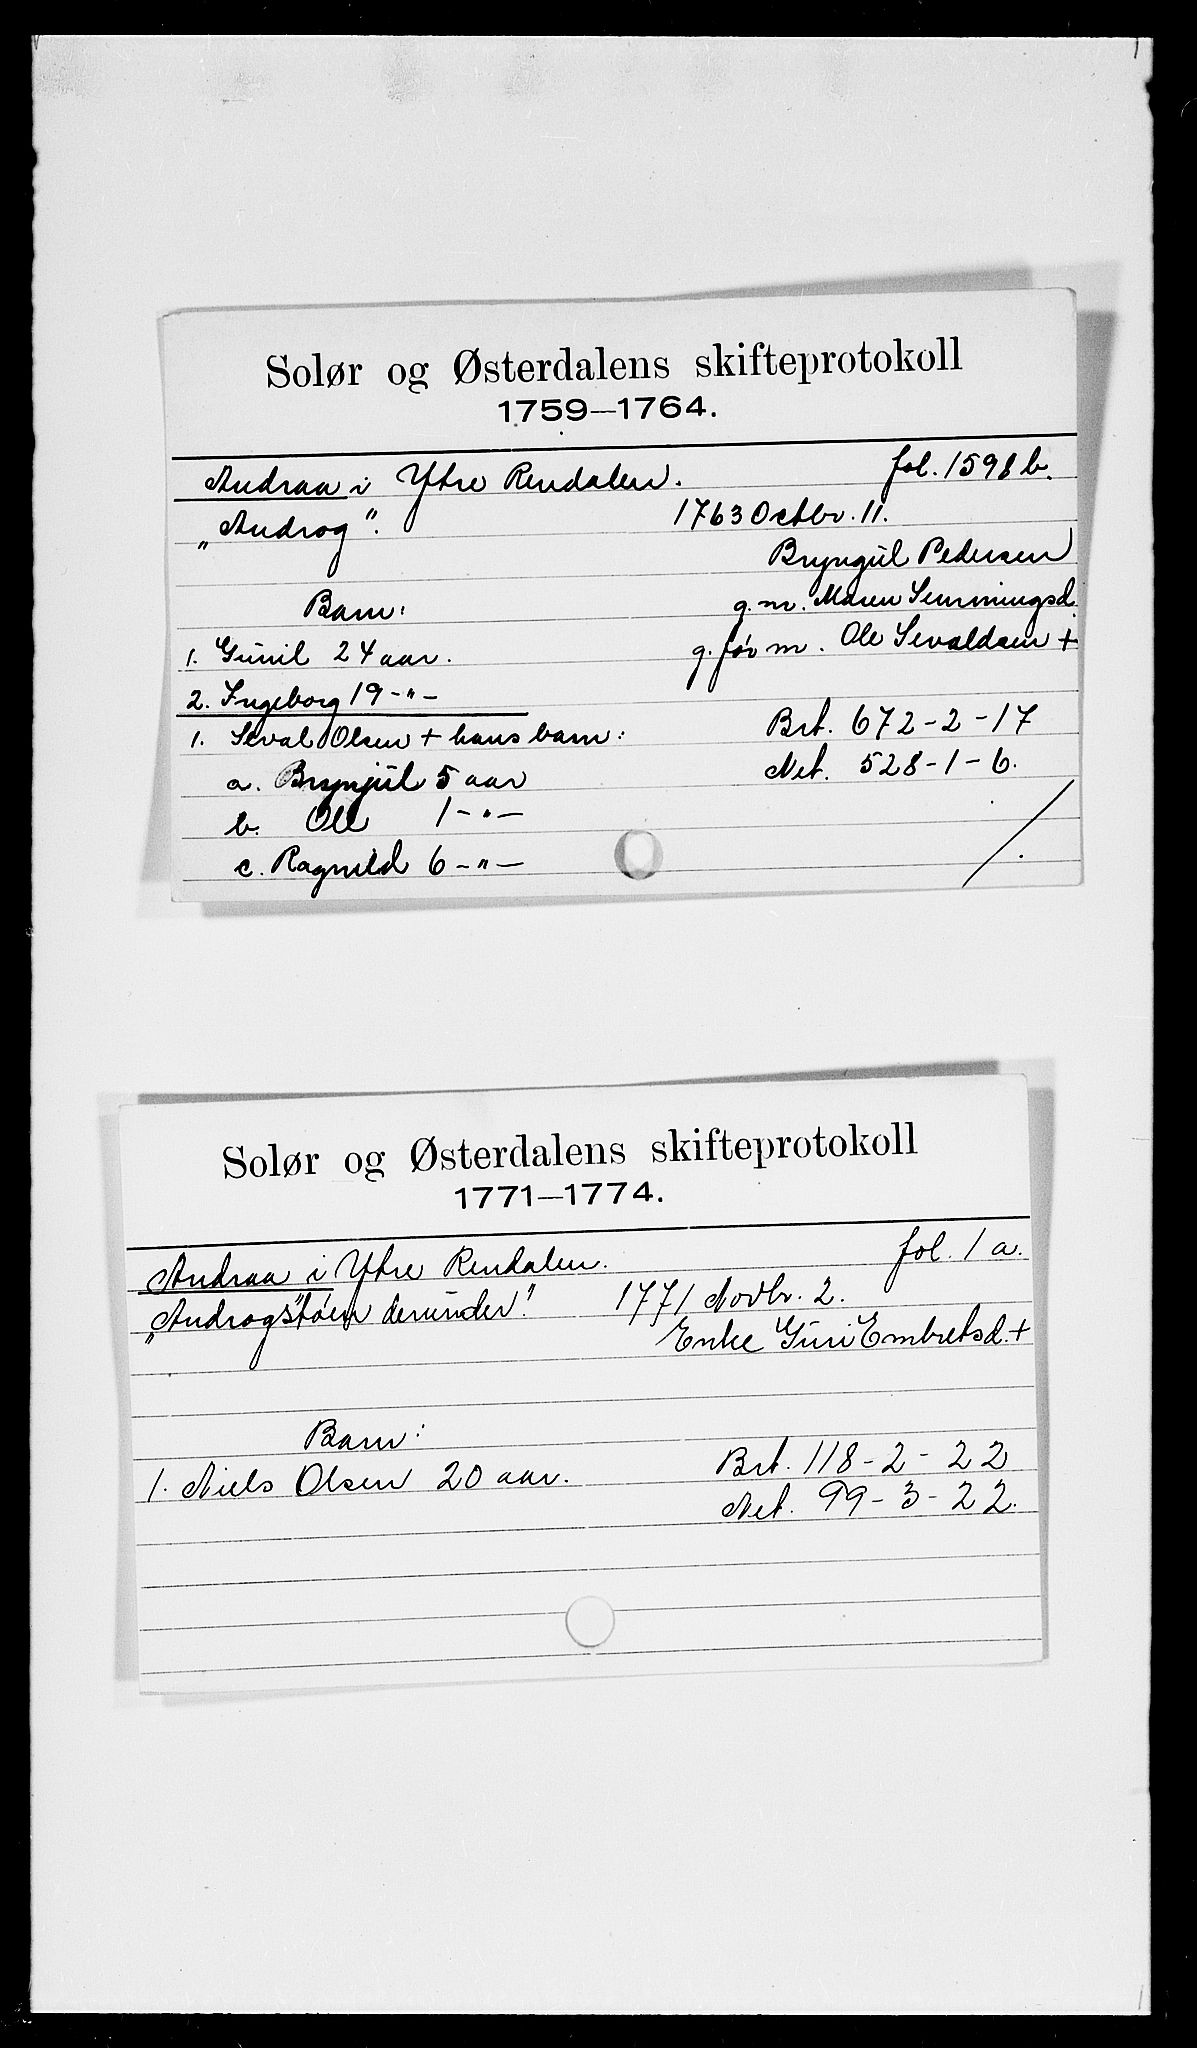 Solør og Østerdalens skifteprotokoll
1759—1764.
Andraa i Ytre Rendalen. fol. 1598 b.
„Androg". 1763 Octbr. 11.
Bryngül Pedersen
Barn: g. m. Maren Semmingsd.
1. Günil 24 aar. g. før m. Ole Sevaldsen +
2. Ingeborg 19 -"-
1. Seval Olsen + hans barn: Brt. 672-2-17
a. Brynjül 5 aar Net. 528-1-6.
b. Ole 1 -"-
c. Ragnild 6 -"-
Solør og Østerdalens skifteprotokoll
1771—1774.
Andraa i Ytre Rendalen. fol. 1 a.
„Androgstøen derunder". 1771 Novbr. 2.
Enke Güri Embretsd. +
Barn:
1. Niels Olsen 20 aar. Brt. 118-2-22
Net. 99-3-22.